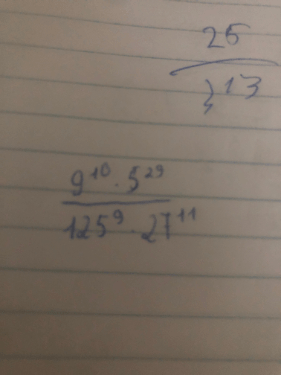 25
3^13
9^10 · 5^29
125^9 · 27^11